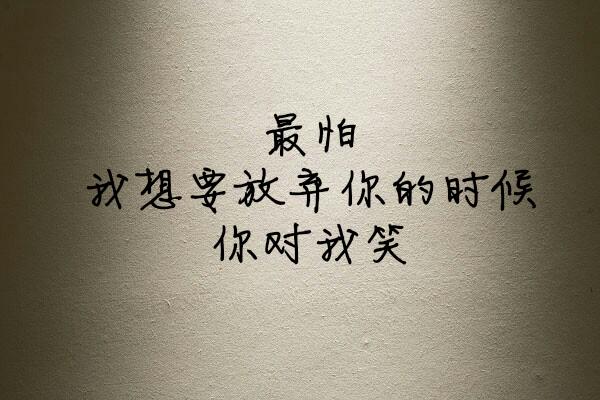 最怕
我想要放弃你的时候
你对我笑